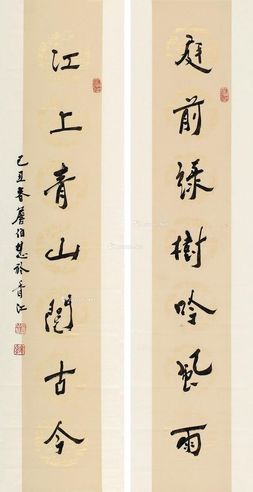 庭前綠樹吟風雨
江上青山閱古今
己丑春 詹伯慧於香江